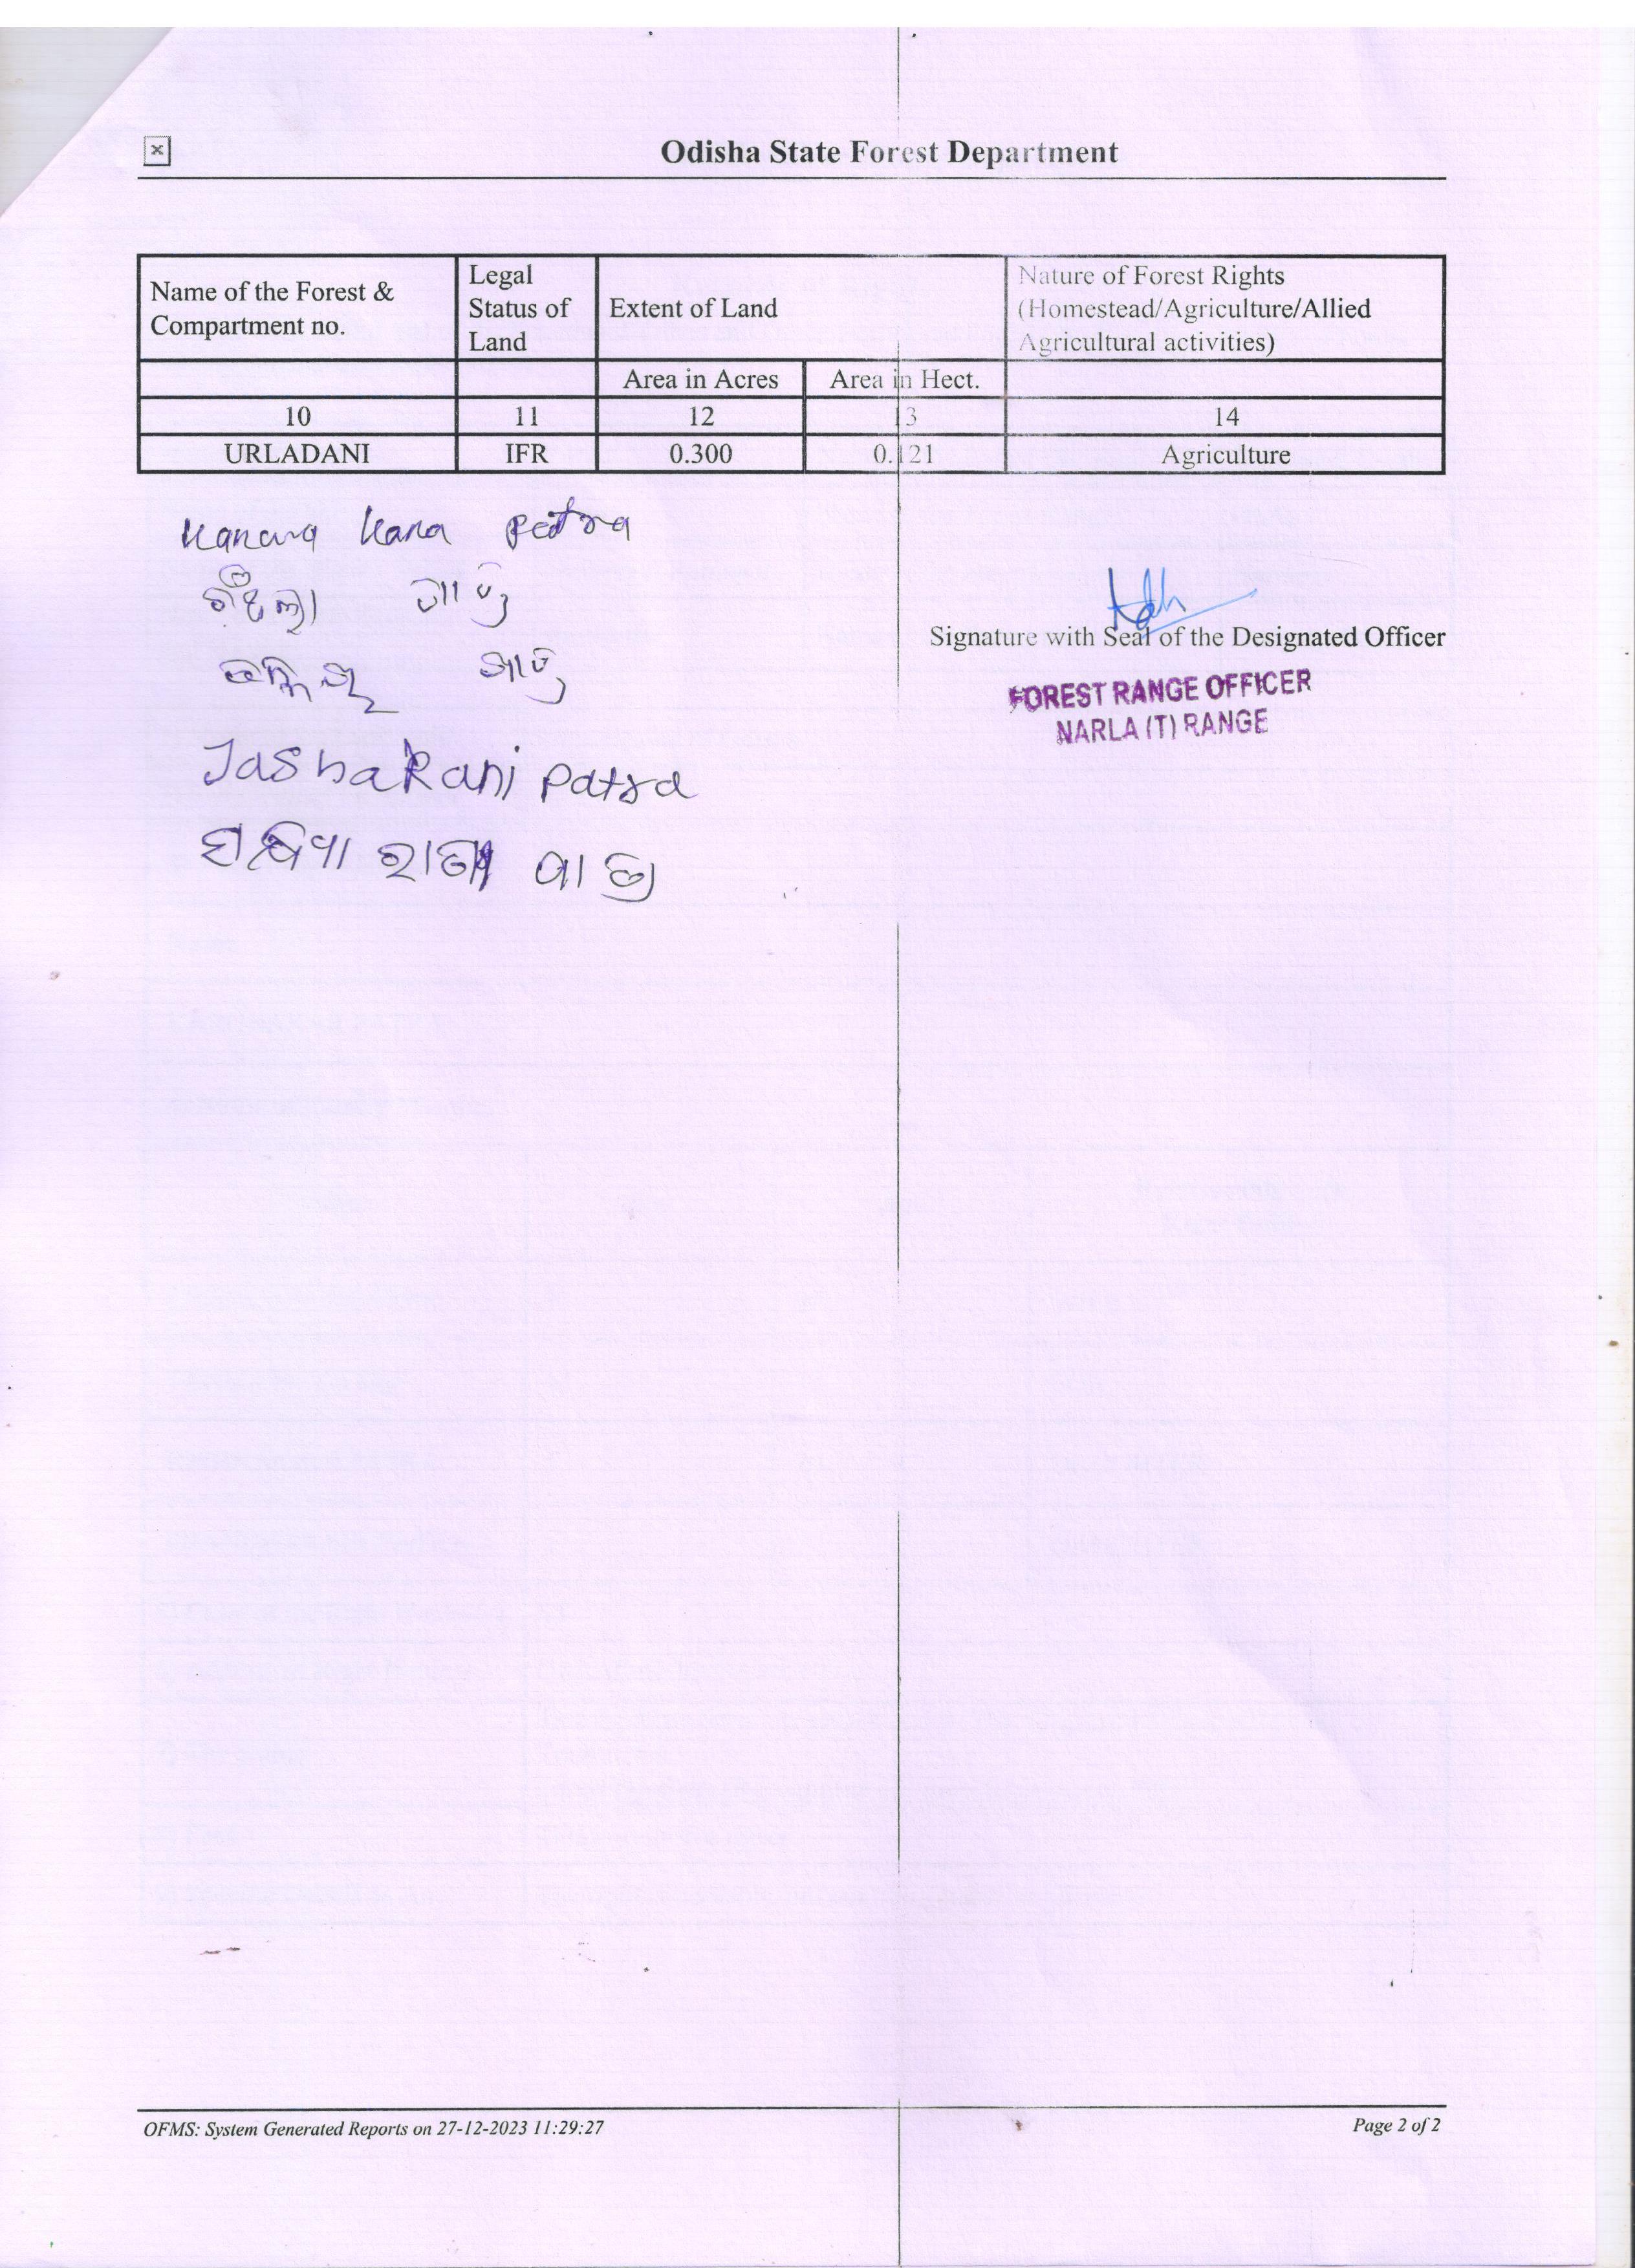 Odisha State Forest Department
Name of the Forest & Compartment no.
Legal Status of Land
Extent of Land
Nature of Forest Rights (Homestead/Agriculture/Allied Agricultural activities)
Area in Acres Area in Hect.
10 11 12 13 14
URLADANI IFR 0.300 0.121 Agriculture
Kanana Kana Patra
ପାତ୍ର
ପାତ୍ର
Signature with Seal of the Designated Officer
FOREST RANGE OFFICER
NARLA (T) RANGE
JasbaRani Patra
ରାଣୀ ପାତ୍ର
OFMS: System Generated Reports on 27-12-2023 11:29:27
Page 2 of 2